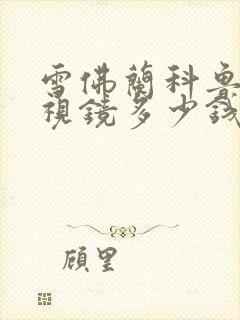 雪佛蘭科魯
視鏡多少錢
顧里